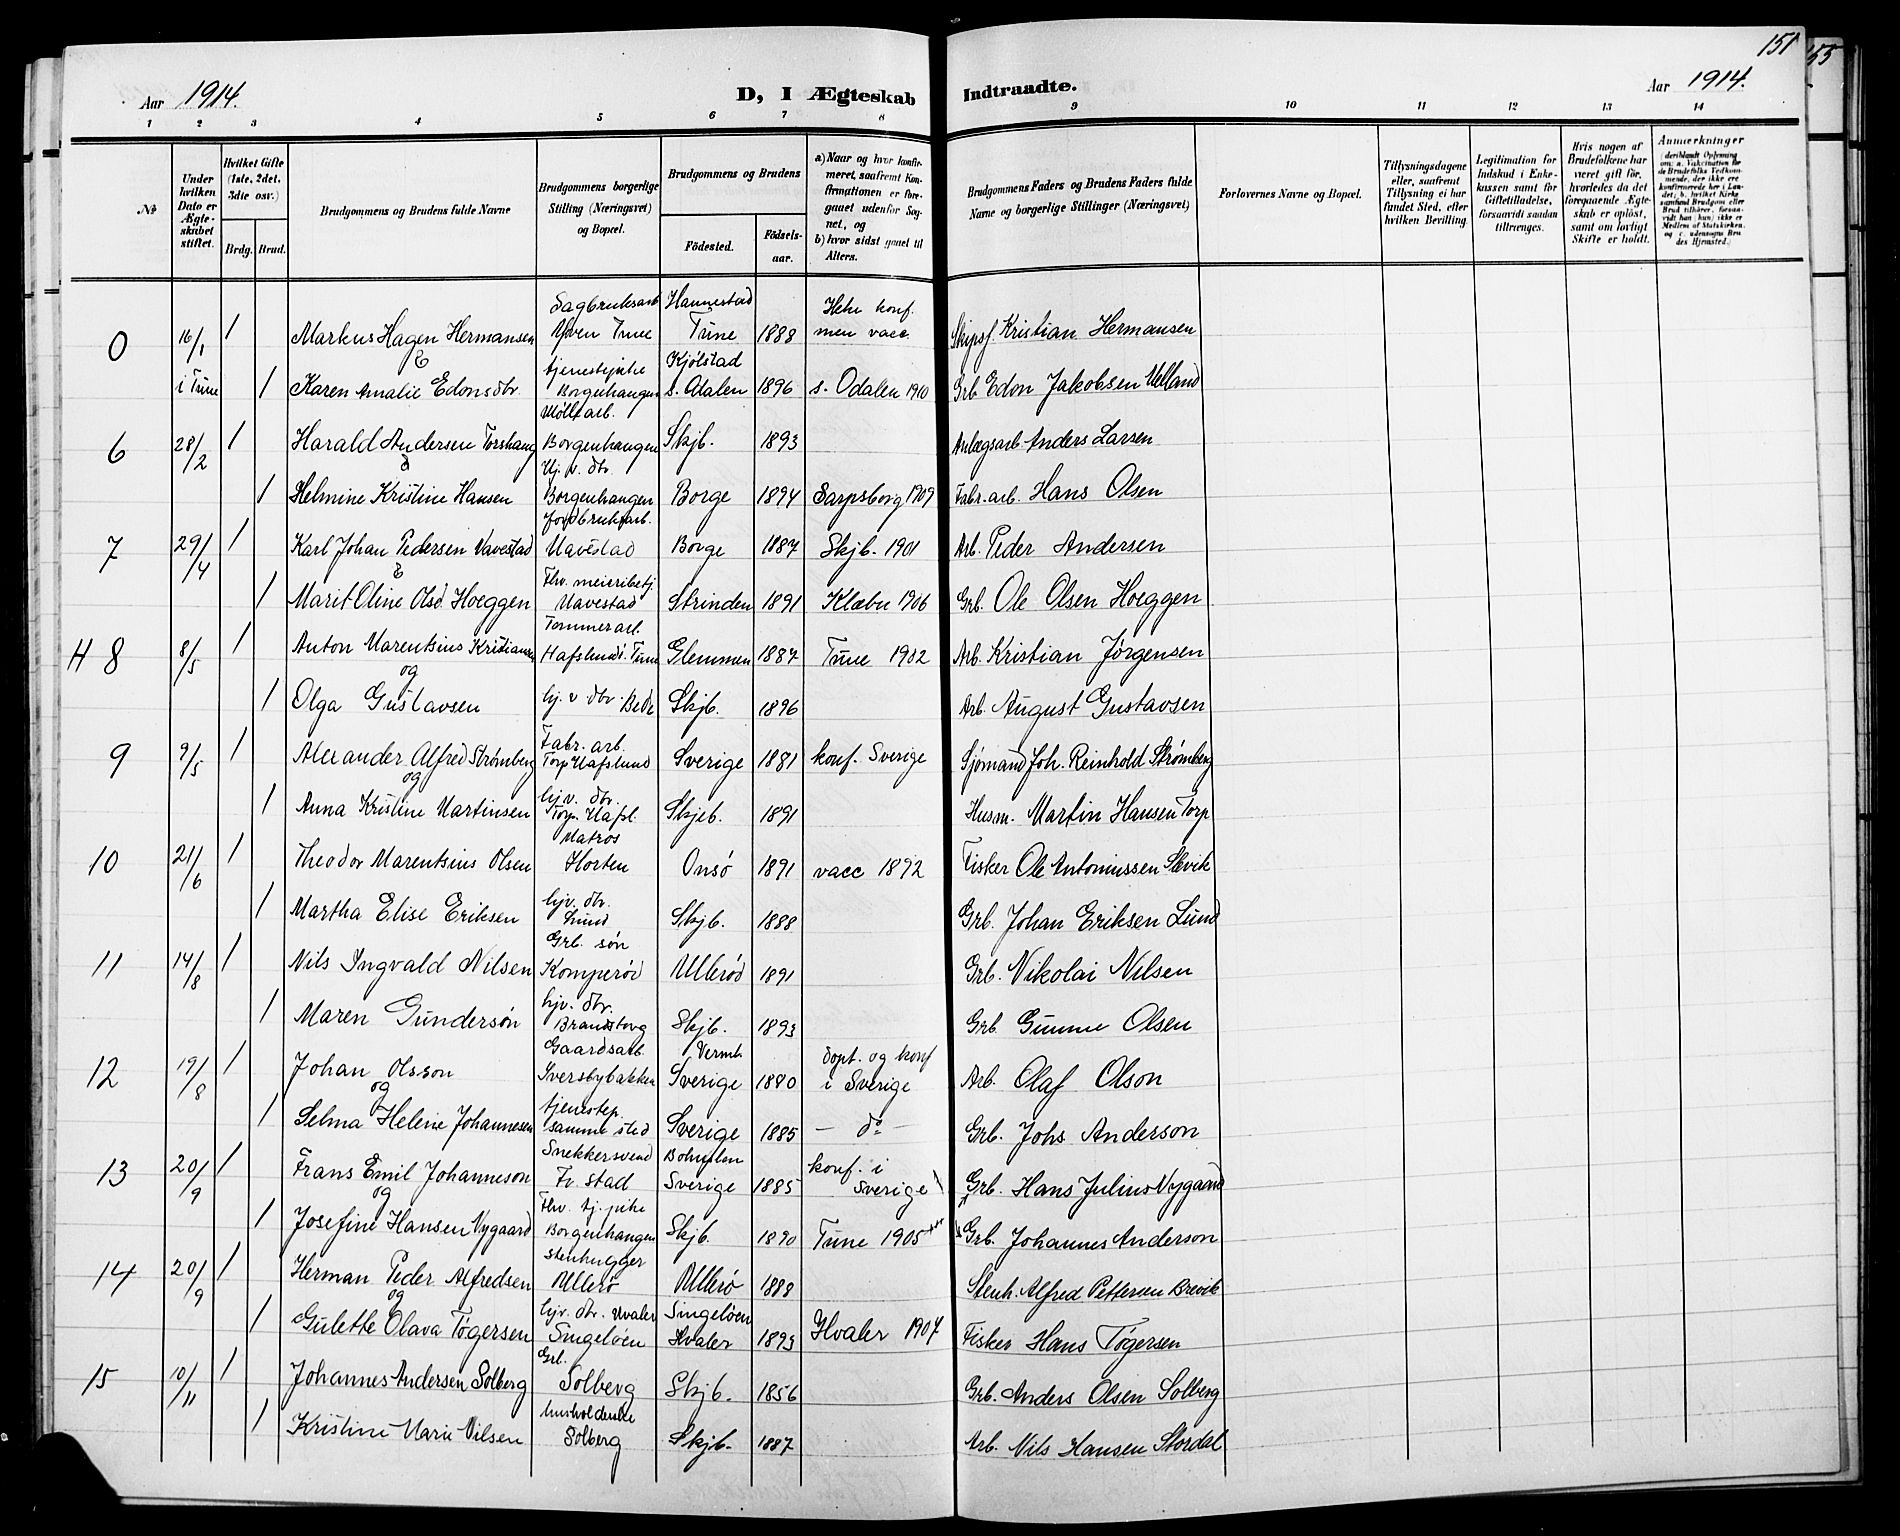 151
155
Aar 1914.
D, I Ægteskab Indtraadte.
Aar 1914.
1 2 3 4 5 6 7 8 9 10 11 12 13 14
№
Under hvilken Dato er Ægteskabet stiftet.
Hvilket Gifte (1ste, 2det, 3die osv.)
Brdg. Brud.
Brudgommens og Brudens fulde Navne
Brudgommens borgerlige Stilling (Næringsvei) og Bopæl.
Brudgommens og Brudens
Födested. Födselsaar.
a) Naar og hvor konfirmeret, saafremt Konfirmationen er foregaaet udenfor Sognet, og
b) hvor sidst gaaet til Alters.
Brudgommens Faders og Brudens Faders fulde Navne og borgerlige Stillinger (Næringsvei)
Forlovernes Navne og Bopæl.
Tillysningsdagene eller, saafremt Tillysning ei har fundet Sted, efter hvilken Bevilling.
Legitimation for Indskud i Enkekassen samt for Giftetilladelse, forsaavidt saadan tiltrænges.
Hvis nogen af Brudefolkene har været gift før, hvorledes da det foregaaende Ægteskab er oplöst, samt om lovligt Skifte er holdt.
Anmærkninger
(deriblandt Oplysning om: a. Vaksination for de Brudefolks Vedkommende, der ikke ere konfirmerede her i Landet; b. hvilket Kirkesamfund Brudgom eller Brud tilhörer, forsaavidt han (hun) ikke er Medlem af Statskirken, og c. udensogns Brudes Hjemsted.)
0 16/1 1 Markus Hagen Hermansen Sagbruksarb Yven Tune Hannestad Tune 1888 Ikke konf. men vacc Skipsf. Kristian Hermansen
&
i Tune 1 Karen Amalie Edonsdtr. tjenestepike Borgenhaugen Kjölstad s. Odalen 1896 s. Odalen 1910 Grb. Edon Jakobsen Ulland
6 28/2 1 Harald Andersen Torshaug Möllearb. Borgenhaugen Skjb. 1893 Anlægsarb Anders Larsen
&
1 Helmine Kristine Hansen Hj. v. dtr. Borgenhaugen Borge 1894 Sarpsborg 1909 Fabr. arb. Hans Olsen
7 29/4 1 Karl Johan Pedersen Navestad Jordbruksarb. Navestad Borge 1887 Skjb. 1901 Arb. Peder Andersen
&
1 Marit Oline Olsd. Hoeggen Fhv. meieribetj. Navestad Strinden 1891 Klæbu 1906 Grb. Ole Olsen Hoeggen
H 8 8/5 1 Anton Marentsius Kristiansen Tømmerarb. Hafslund i Tune Glemmen 1887 Tune 1902 Arb. Kristian Jörgensen
og
1 Olga Gustavsen hj. v dtr. Skjb. 1896 Arb. August Gustavsen
9 9/5 1 Alexander Alfred Strømberg Fabr. arb. Torp Hafslund Sverige 1881 konf. Sverige Sjømand Joh. Reinhold Strømberg
og
1 Anna Kristine Martinsen hjv. dtr. Torp. Hafsl. Skjeb. 1891 Husm. Martin Hansen Torp
10 21/6 1 Theodor Marentsius Olsen Matros Horten Onsö 1891 vacc 1892 Fisker Ole Antoniussen Slevik
1 Martha Elise Eriksen hjv. dtr. Lund Skjb. 1888 Grb. Johan Eriksen Lund
11 14/8 1 Nils Ingvald Nilsen Grb. søn Komperöd Ullerød 1891 Grb. Nikolai Nilsen
1 Maren Gundersön hjv. dtr. Brandstorg Skjb. 1893 Grb. Gunne Olsen
12 19/8 1 Johan Olsson Gaardsarb. Iversbybakken Verml. Sverige 1880 döpt. og konf i Sverige Arb. Olaf Olson
og
1 Selma Helene Johannesen tjenestep. samme sted Sverige 1885 – do – Grb. Johs Anderson
13 20/9 1 Frans Emil Johanneson Snekkersvend Fr. stad Bohuslen Sverige 1885 konf. i Sverige Grb. Hans Julius Nygaard
og
1 Josefine Hansen Nygaard Fhv. tj. pike Borgenhaugen Skjb. 1890 Tune 1905 Grb. Johannes Anderson
14 20/9 1 Herman Peder Alfredsen stenhugger Ullerö Ullerö 1888 Stenh. Alfred Pettersen Brevik
og
1 Gulette Olava Tøgersen hjv. dtr. Hvaler Singelöen Singelöen Hvaler 1893 Hvaler 1907 Fisker Hans Tøgersen
15 10/11 1 Johannes Andersen Solberg Grb. Solberg Skjb. 1856 Grb. Anders Olsen Solberg
1 Kristine Marie Nilsen husholderske Solberg Skjb. 1887 Arb. Nils Hansen Stordal